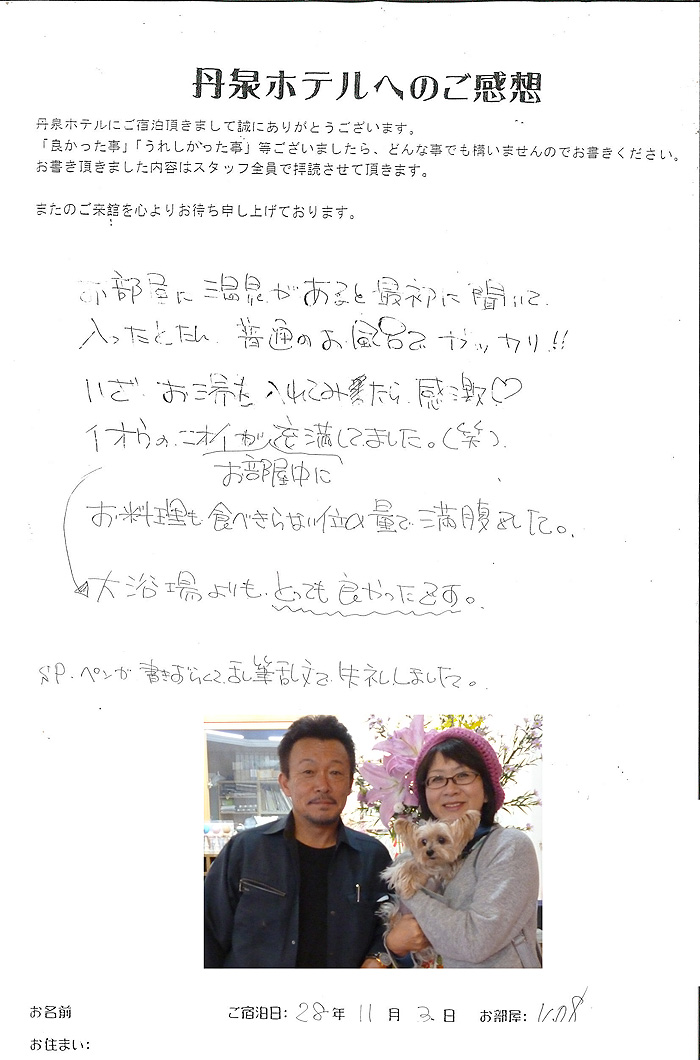 丹泉ホテルへのご感想
丹泉ホテルにご宿泊頂きまして誠にありがとうございます。
「良かった事」「うれしかった事」等ございましたら、どんな事でも構いませんのでお書きください。
お書き頂きました内容はスタッフ全員で拝読させて頂きます。
またのご来館を心よりお待ち申し上げております。
お部屋に温泉があると最初に聞いて、
入ったとたん、普通のお風呂でガッカリ!!
いざ お湯を入れてみたら、感激♡
イオウのニオイが充満してました。(笑)
お部屋中に
お料理も食べきらない位の量で、満腹でした。
大浴場よりも、とっても良かったです。
SP.ペンが書きずらくて、乱筆乱文で、失礼しました。
お名前 ご宿泊日: 28年 11月 3日 お部屋:
お住まい: